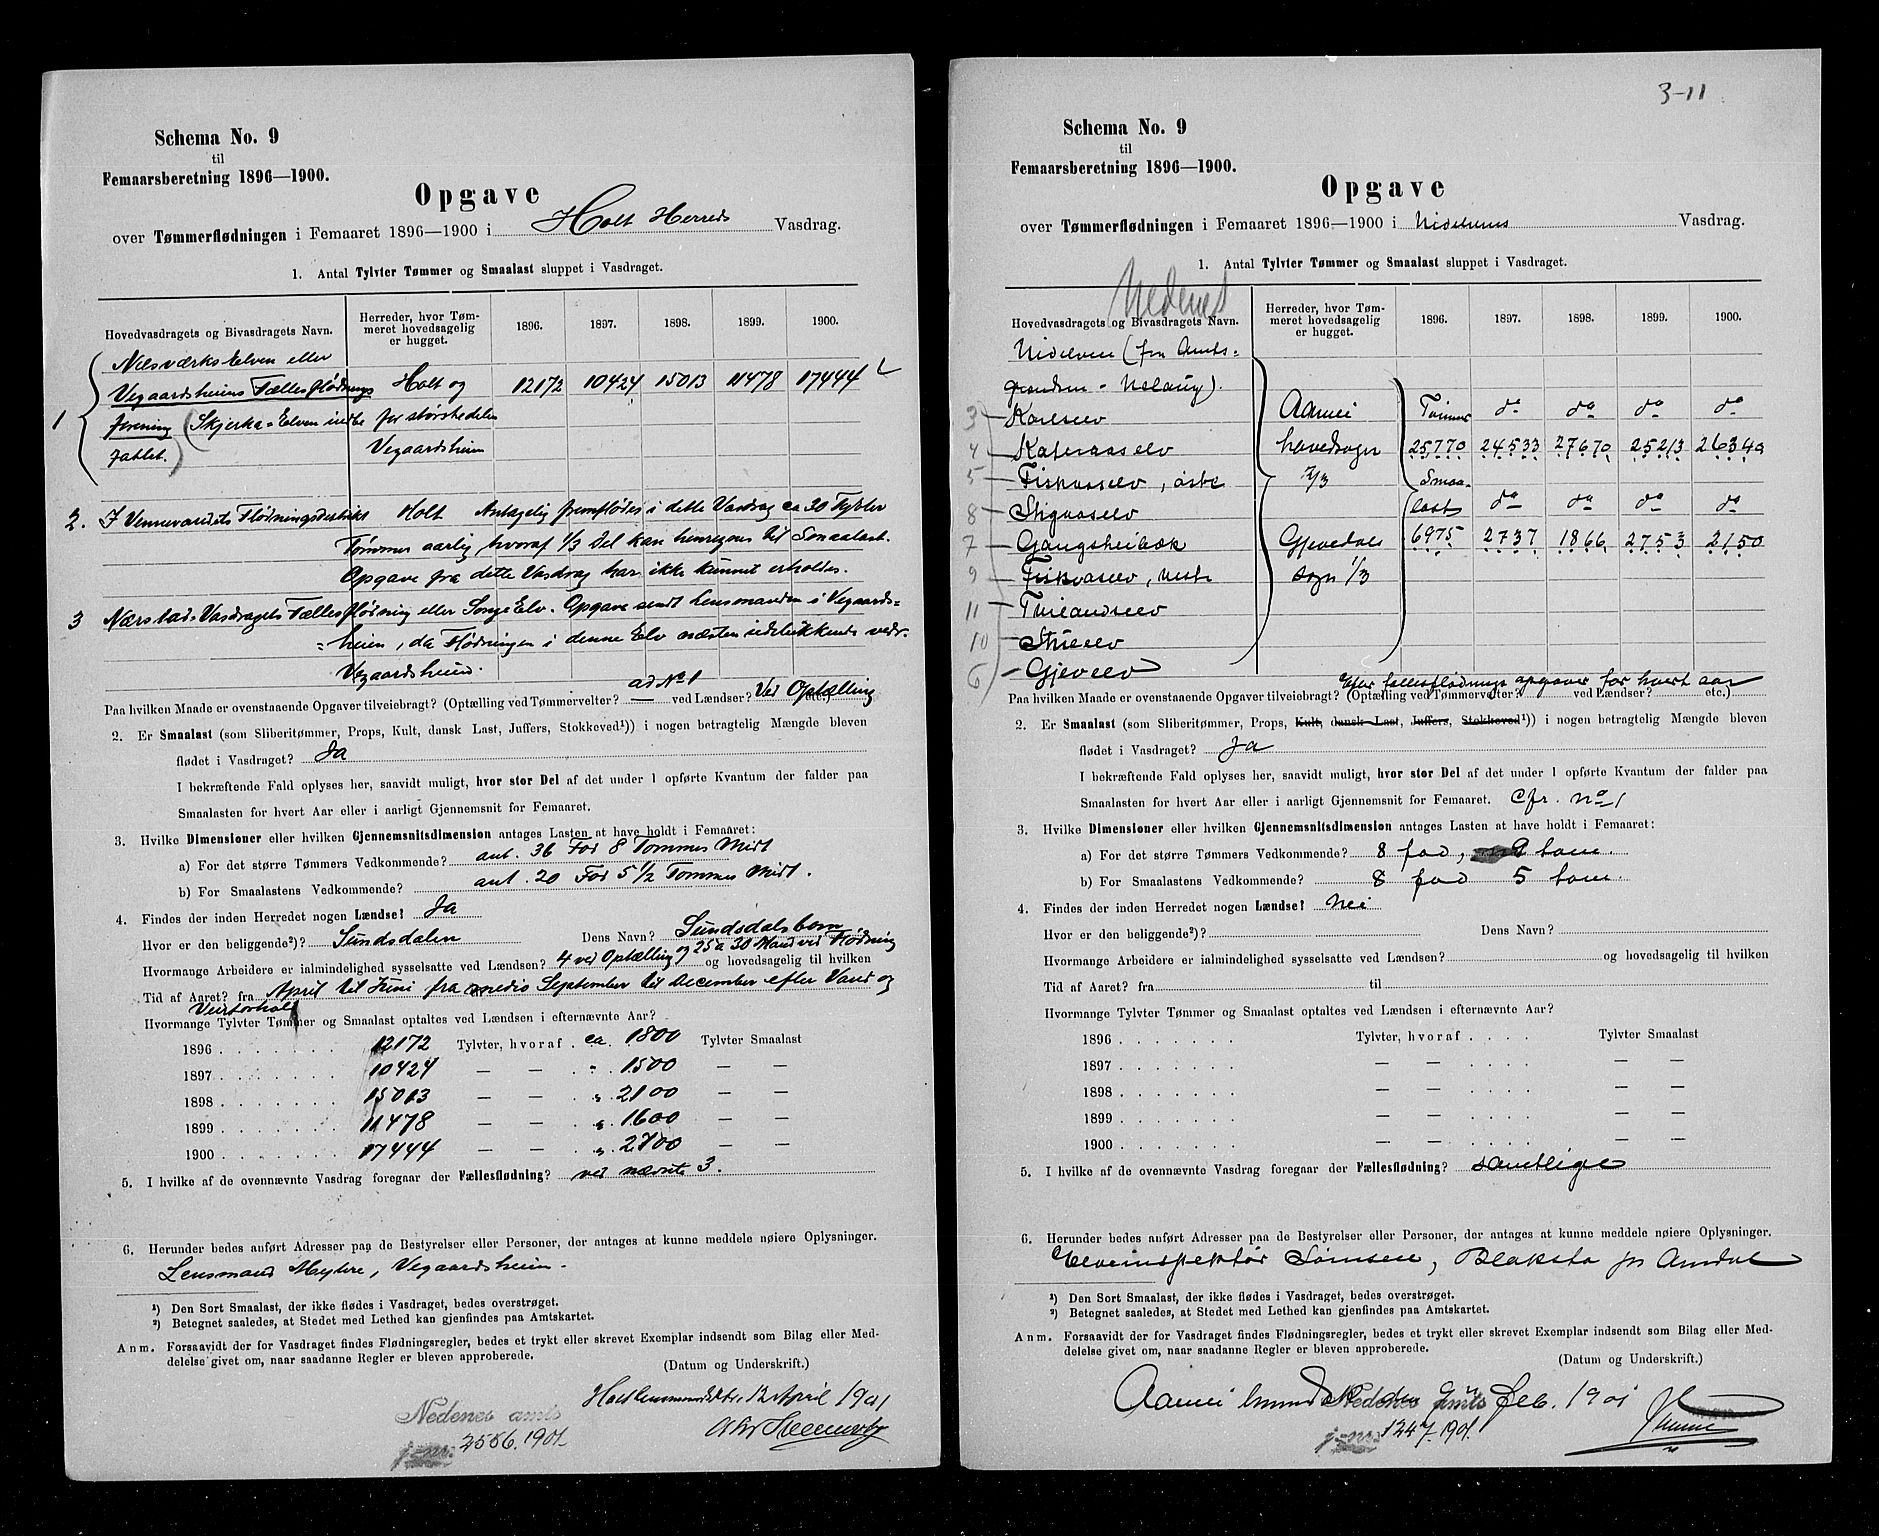 Schema No. 9
til
Femaarsberetning 1896—1900.
Opgave
over Tømmerflødningen i Femaaret 1896—1900 i Holt Herreds Vasdrag.
1. Antal Tylvter Tømmer og Smaalast sluppet i Vasdraget.
Hovedvasdragets og Bivasdragets Navn. Herreder, hvor Tømmeret hovedsagelig er hugget. 1896. 1897. 1898. 1899. 1900.
1 Næsværks Elven eller
Vegaardsheiens Fællesflødnings Holt og 12172 10424 15013 11478 17444
forening (Skjerka-Elven indbe for størstedelen
fattet.) Vegaardsheien
2. I Vennevandets Flødningsdistrikt Holt Antagelig fremflødes i dette Vasdrag ca 30 Tylvter
Tømmer aarlig, hvoraf 1/3 Del kan henregnes til Smaalast.
Opgave fra dette Vasdrag har ikke kunnet erholdes.
3 Nærstad-Vasdragets Fællesflødning eller Songe Elv. Opgave sendt Lensmanden i Vegaards=
=heien, da Flødningen i denne Elv næsten udelukkende vedr.
Vegaardsheien.
ad No 1
Paa hvilken Maade er ovenstaaende Opgaver tilveiebragt? (Optælling ved Tømmervelter? — ved Lændser? Ved Optælling etc.)
2. Er Smaalast (som Sliberitømmer, Props, Kult, dansk Last, Juffers, Stokkeved¹)) i nogen betragtelig Mængde bleven
flødet i Vasdraget? Ja
I bekræftende Fald oplyses her, saavidt muligt, hvor stor Del af det under 1 opførte Kvantum der falder paa
Smaalasten for hvert Aar eller i aarligt Gjennemsnit for Femaaret.
3. Hvilke Dimensioner eller hvilken Gjennemsnitsdimension antages Lasten at have holdt i Femaaret:
a) For det større Tømmers Vedkommende? ant. 36 Fod 8 Tommer Midt
b) For Smaalastens Vedkommende? ant. 20 Fod 5 1/2 Tommer Midt.
4. Findes der inden Herredet nogen Lændse? Ja
Hvor er den beliggende²)? Sundsdalen Dens Navn? Sundsdalsbom
Hvormange Arbeidere er ialmindelighed sysselsatte ved Lændsen? 4 ved Optælling og 25 a 30 Mand ved Flødning og hovedsagelig til hvilken
Tid af Aaret? fra April til Juni fra medio September til December efter Vand og
Veirforhold
Hvormange Tylvter Tømmer og Smaalast optaltes ved Lændsen i efternævnte Aar?
1896 . . . . . . . 12172 Tylvter, hvoraf . ca. 1800 Tylvter Smaalast
1897 . . . . . . . 10424 — — " 1500 — —
1898 . . . . . . . 15013 — — " 2100 — —
1899 . . . . . . . 11478 — — " 1600 — —
1900 . . . . . . . 17444 — — " 2700 — —
5. I hvilke af de ovennævnte Vasdrag foregaar der Fællesflødning? ved nævnte 3.
6. Herunder bedes anført Adresser paa de Bestyrelser eller Personer, der antages at kunne meddele nøiere Oplysninger.
Lensmand Myhre, Vegaardsheien.
¹) Den Sort Smaalast, der ikke flødes i Vasdraget, bedes overstrøget.
²) Betegnet saaledes, at Stedet med Lethed kan gjenfindes paa Amtskartet.
Anm. Forsaavidt der for Vasdraget findes Flødningsregler, bedes et trykt eller skrevet Exemplar indsendt som Bilag eller Meddelelse
givet om, naar saadanne Regler er bleven approberede.
(Datum og Underskrift.)
12 April 1901
Nedenes amts
j-no. 2556.1901.
3-11
Schema No. 9
til
Femaarsberetning 1896—1900.
Opgave
over Tømmerflødningen i Femaaret 1896—1900 i Nidelvens Vasdrag.
1. Antal Tylvter Tømmer og Smaalast sluppet i Vasdraget.
Nedenes
Hovedvasdragets og Bivasdragets Navn. Herreder, hvor Tømmeret hovedsagelig er hugget. 1896. 1897. 1898. 1899. 1900.
Nidelven (fra Amts-
grændsen - Nelaug).
3 Aamli Tømmer do do do do
4 hovedsogn 25770 24533 27670 25213 26340
5 Fiskvasselv, østre 2/3 Smaa-
8 Stigvasselv last do do do do
7 Gangsheibæk Gjevedals 6975 2737 1866 2753 2150
9 Fiskvasselv, vestre sogn 1/3
11
10
6 Gjevelv
Efter fællesflødnings opgaver for hvert aar
Paa hvilken Maade er ovenstaaende Opgaver tilveiebragt? (Optælling ved Tømmervelter? ved Lændser? etc.)
2. Er Smaalast (som Sliberitømmer, Props, Kult, dansk Last, Juffers, Stokkeved¹)) i nogen betragtelig Mængde bleven
flødet i Vasdraget? Ja
I bekræftende Fald oplyses her, saavidt muligt, hvor stor Del af det under 1 opførte Kvantum der falder paa
Smaalasten for hvert Aar eller i aarligt Gjennemsnit for Femaaret. Cfr. No 1
3. Hvilke Dimensioner eller hvilken Gjennemsnitsdimension antages Lasten at have holdt i Femaaret:
a) For det større Tømmers Vedkommende? 8 fod, 9 tom.
b) For Smaalastens Vedkommende? 8 fod 5 tom.
4. Findes der inden Herredet nogen Lændse? Nei
Hvor er den beliggende²)? Dens Navn?
Hvormange Arbeidere er ialmindelighed sysselsatte ved Lændsen? og hovedsagelig til hvilken
Tid af Aaret? fra til
Hvormange Tylvter Tømmer og Smaalast optaltes ved Lændsen i efternævnte Aar?
1896 . . . . . . . Tylvter, hvoraf . . . . Tylvter Smaalast
1897 . . . . . . . — — — —
1898 . . . . . . . — — — —
1899 . . . . . . . — — — —
1900 . . . . . . . — — — —
5. I hvilke af de ovennævnte Vasdrag foregaar der Fællesflødning? samtlige
6. Herunder bedes anført Adresser paa de Bestyrelser eller Personer, der antages at kunne meddele nøiere Oplysninger.
Elveinspektør Simsen, Blakstad pr Arendal
¹) Den Sort Smaalast, der ikke flødes i Vasdraget, bedes overstrøget.
²) Betegnet saaledes, at Stedet med Lethed kan gjenfindes paa Amtskartet.
Anm. Forsaavidt der for Vasdraget findes Flødningsregler, bedes et trykt eller skrevet Exemplar indsendt som Bilag eller Meddelelse
givet om, naar saadanne Regler er bleven approberede.
(Datum og Underskrift.)
Aamli Feb. 1901
Nedenes amts
j-no. 1247.1901.